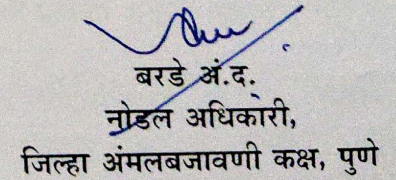 बरडे अं.द.
नोडल अधिकारी,
जिल्हा अंमलबजावणी कक्ष, पुणे